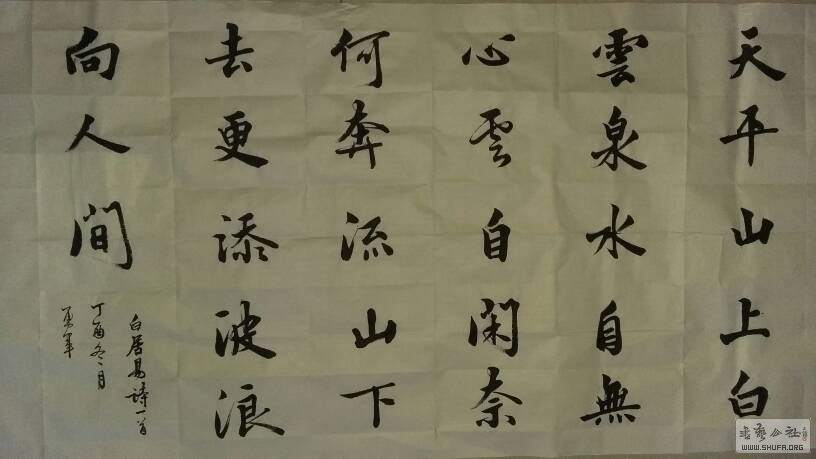 天平山上白
雲泉水自無
心雲自閑奈
何奔流山下
去更添波浪
向人間
白居易詩一首
丁酉冬月
書藝公社
WWW.SHUFA.ORG